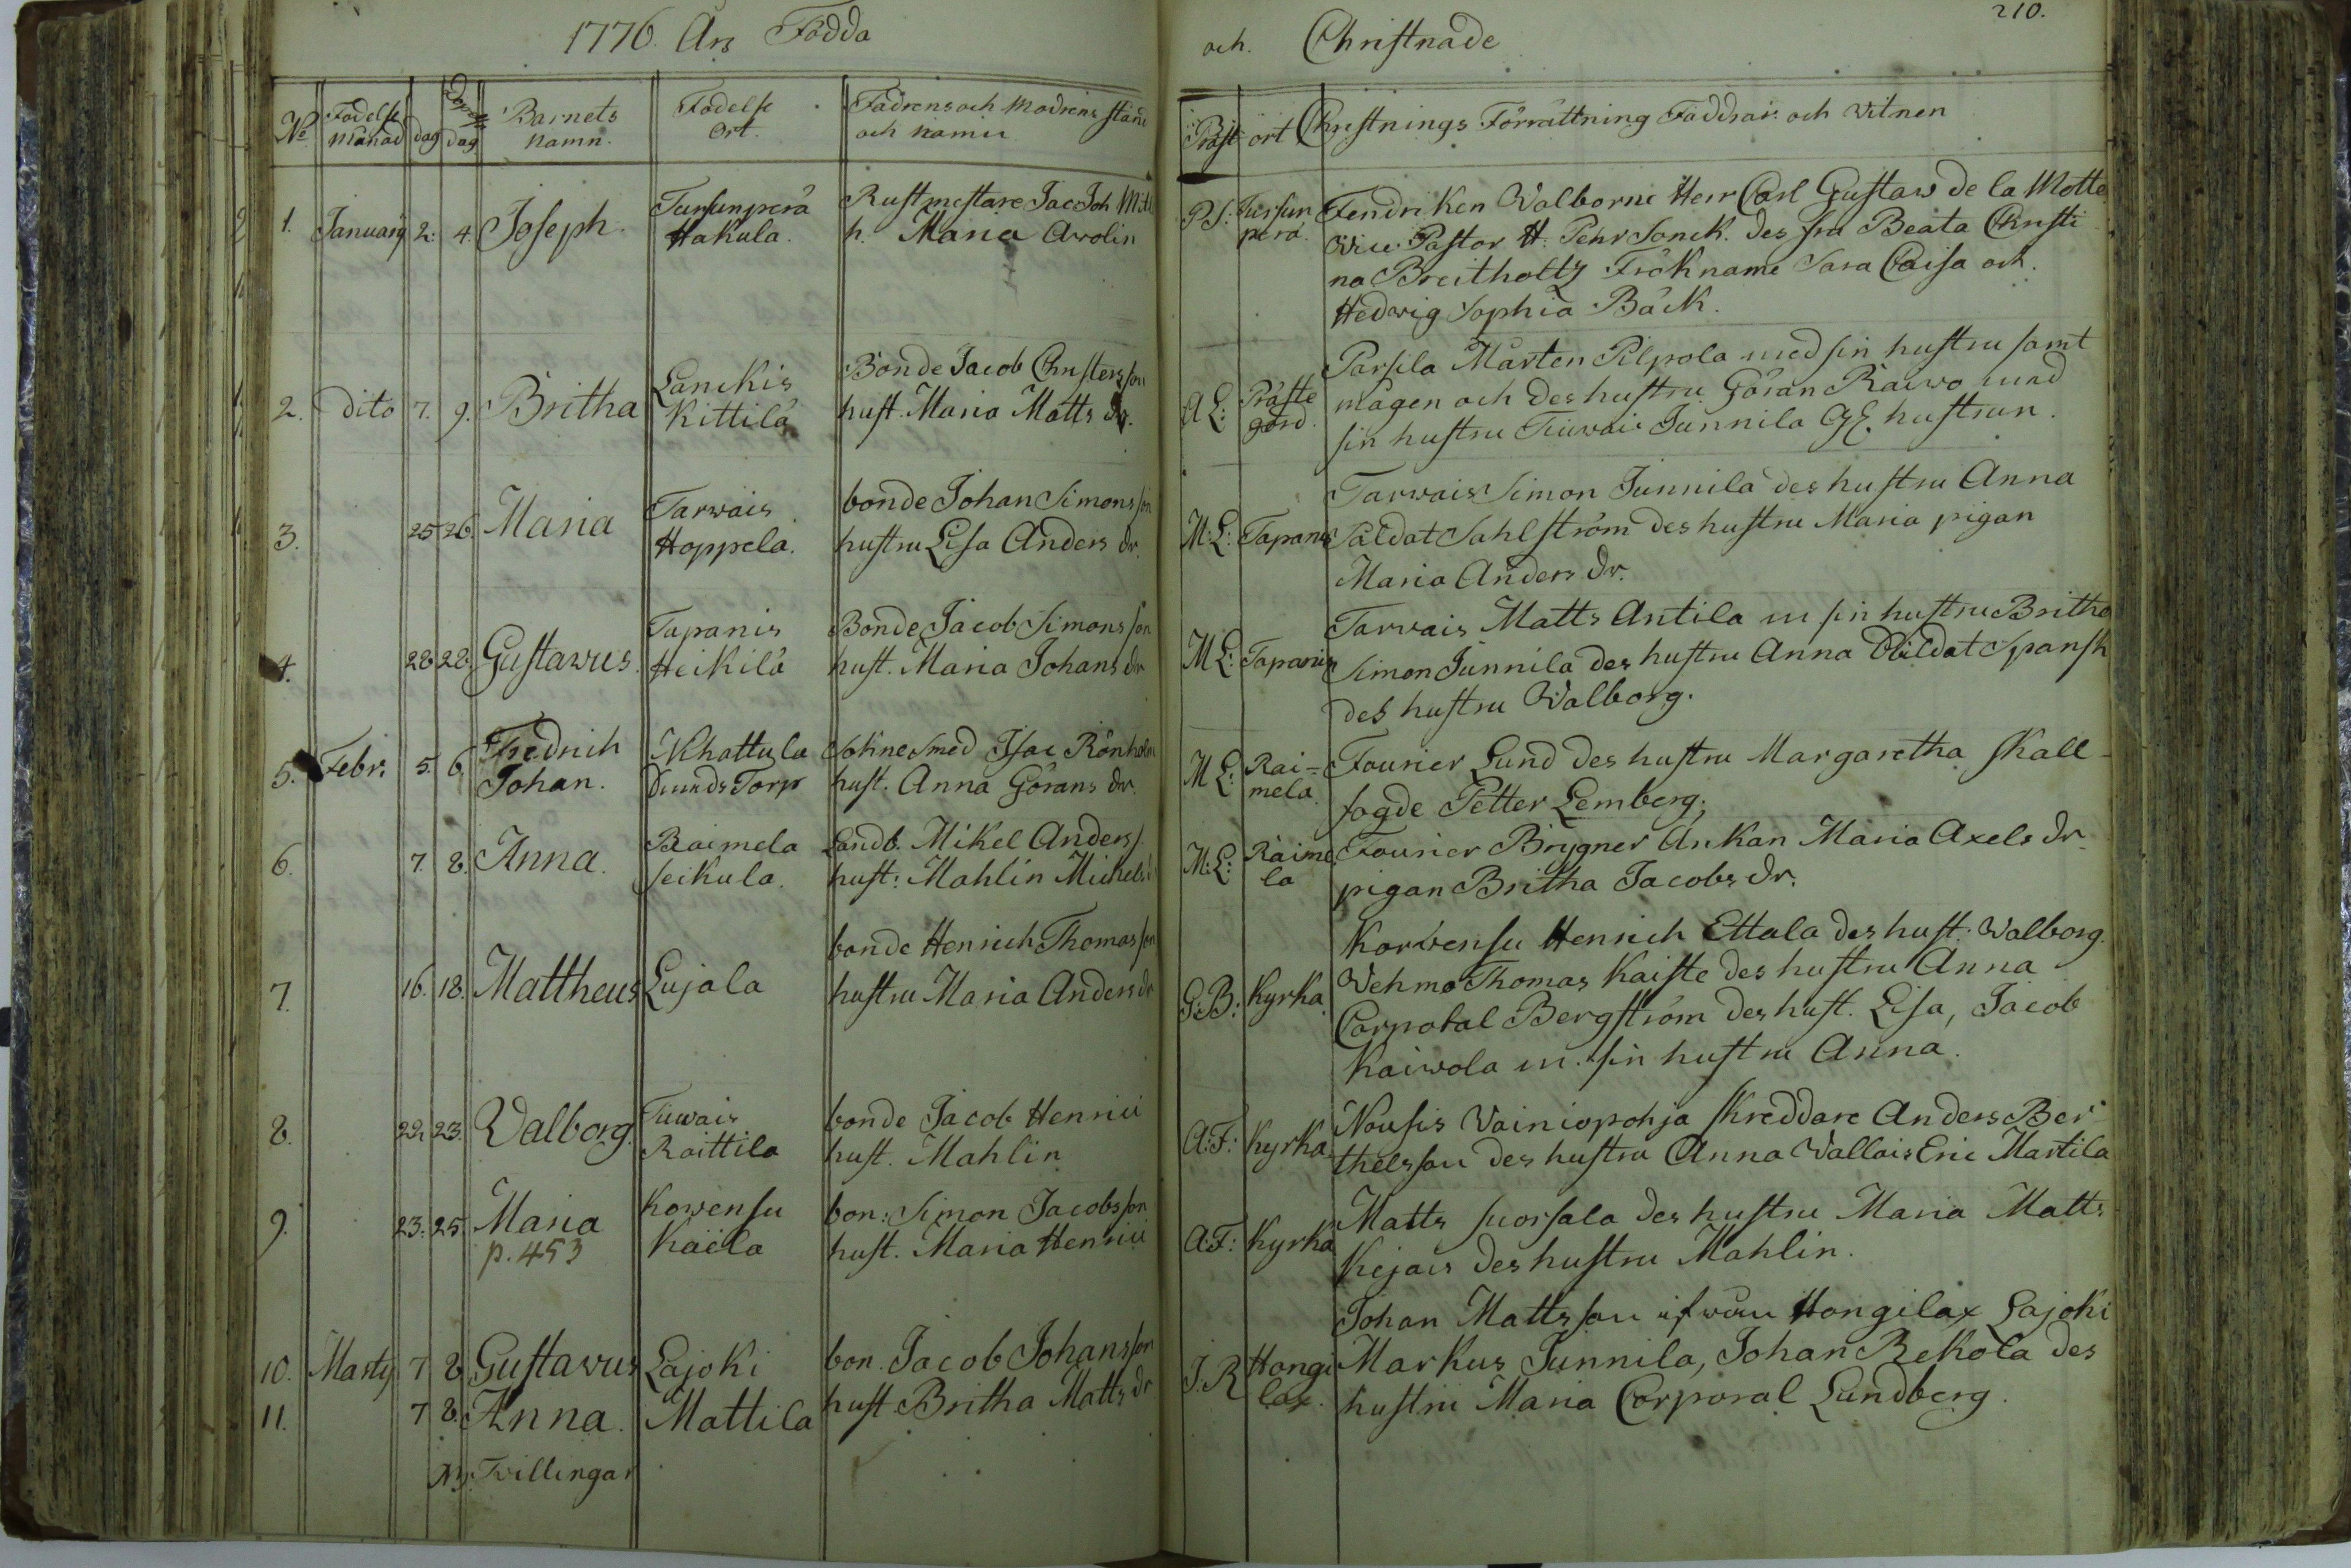 1776. Års Födda
No Födelse månad dag dag Barnets Namn. Födelse Ort. Fädrens och Modrens stånd och namn
1. January 2. 4. Joseph. Tursunperä Hakula. Rustmestare Jac Joh
h. Maria Avolin
2. dito 7. 9. Britha Lanckis Kittilä Bonde Jacob Christersson
hust. Maria Matts dr.
3. 25 26. Maria Tarvais Hoppela. bonde Johan Simonsson
hustru Lisa Anders dr.
4. 28 28. Gustavus. Tapanis Heikilä Bonde Jacob Simons son
hust. Maria Johans dr
5. Febr. 5. 6. Fredrich Johan. Torp Smed Isac Rönholm
hust. Anna Görans dr.
6. 7. 8. Anna. Raimela Seikula. Landb. Mikel Anders
hust: Mahlin Michels
7. 16. 18. Mattheus Lujala bonde Henrich Thomas son
hustru Maria Anders dr
8. 22 23. Valborg. Tuvais Raittila bonde Jacob Henrici
hust. Mahlin
9. 23. 25. Maria Kowensu Käela bon: Simon Jacobsson
p. 453 hust. Maria Henrici
10. Marty 7 8 Gustavus Lajoki bon. Jacob Johansson
11. 7 8. Anna. Mattila hust Britha Matts dr
Tvillingar
210.
och. Christnade
Präst ort Christnings Förrättning Faddrar och Vitnen
P.S: Tursun perä. Fendriken Valborne Herr Carl Gustav de la Motte
Vice Pastor H. Pehr Sonck. des fru Beata Christi
na Breitholtz Fröknarne Sara Caisa och
Hedvig Sophia Bäck.
A L: Präste gård. Parsila Mårten Pilpola med sin hustru samt
mågen och des hustru Göran Raivo med
sin hustru Tuwais Junnila hustrun.
M: L: Tapanis Tarvais Simon Junnila des hustru Anna
Saldat Sahlström des hustru Maria pigan
Maria Anders dr.
M L: Tapanis Tarvais Matts Antila m sin hustru Britha
Simon Junnila des hustru Anna Spansk
des hustru Walborg.
M L: Rai= mela. Fourier Lund des hustru Margaretha Skall
fogde Petter Lemberg.
M: L: Raime la Fourier Brygner Ankan Maria Axels dr
pigan Britha Jacobs dr.
G: B: Kyrka. Korvensu Henrich Ettala des hust. Walborg.
Vehma Thomas Kaiste des hustru Anna
Corporal Bergström des hust. Lisa, Jacob
Kaivola m. sin hustru Anna.
A: F: Kyrka Nousis Vainiopohja Skreddare Anders Ber
thelsson des hustru Anna Vallais Eric Martila
A: F: Kyrka Matts Suorsala des hustru Maria Matts
Kejais des hustru Mahlin.
J. R Hongi lax. Johan Mattsson ifrån Hongilax Lajoki
Markus Junnila, Johan Rekola des
hustru Maria Corporal Lundberg.